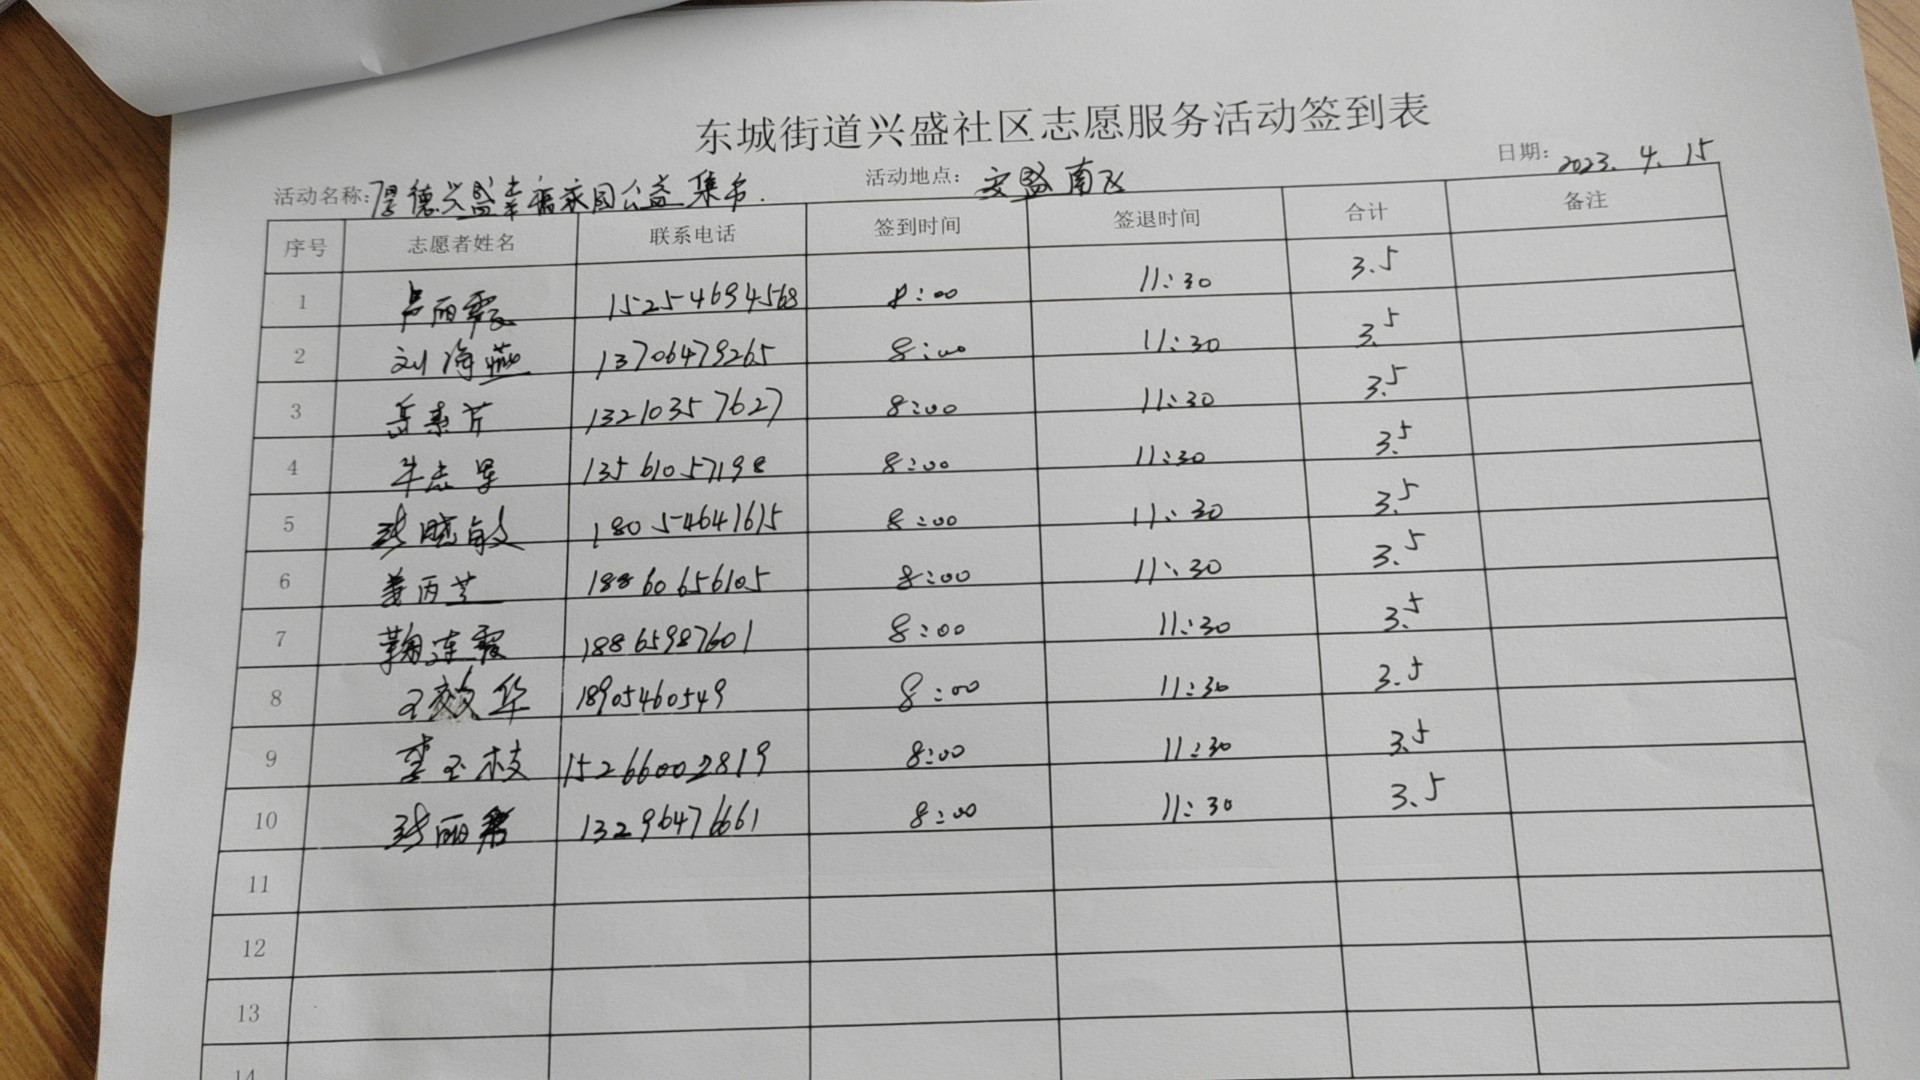 东城街道兴盛社区志愿服务活动签到表
活动名称:厚德兴盛幸福家园公益集市. 活动地点: 安盛南区 日期: 2023.4.15
序号 志愿者姓名 联系电话 签到时间 签退时间 合计 备注
1 卢丽霞 15254694568 8:00 11:30 3.5
2 刘海燕 13706479265 8:00 11:30 3.5
3 岳素芹 13210357627 8:00 11:30 3.5
4 牛志军 13561057198 8:00 11:30 3.5
5 张晓敏 18054641615 8:00 11:30 3.5
6 姜丙芝 18860656105 8:00 11:30 3.5
7 鞠连霞 18865987601 8:00 11:30 3.5
8 王效华 18905460549 8:00 11:30 3.5
9 李玉枝 15266002819 8:00 11:30 3.5
10 张丽 13296476661 8:00 11:30 3.5
11
12
13
14